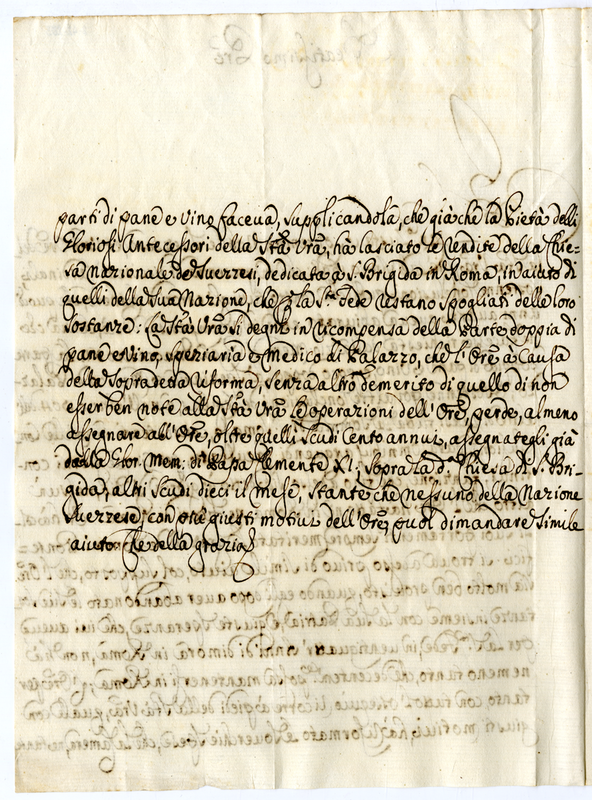 parti di pane e vino faceva, supplicandola, che già che la Pietà delli
Gloriosi Antecessori della Stà Vrã, hà lasciato le rendite della Chie-
sa Nazionale de Suezzesi, dedicata à S. Brigida in Roma, in aiuto di
quelli della sua Nazione, che p la Sta fede restano spogliati delle loro
sostanze: La Stà Vrã si degni in ricompensa della Parte doppia di
pane e vino, speziaria e Medico di Palazzo, che l'Orẽ à causa
della sopradetta riforma, senza altro demerito di quello di non
esser ben note alla Stà Vrã le operazioni dell'Orẽ, perde, almeno
assegnare all'Orẽ, oltre quelli scudi Cento annui, assegnategli già
dalla glor. Mem. di Papa Clemente XI. sopra la d. Chiesa di S. Bri-
gida, altri scudi dieci il mese, stante che nessuno della Nazione
Suezzese, con più giusti motivi dell'Orẽ, puol dimandare simile
aiuto. Che della grazia